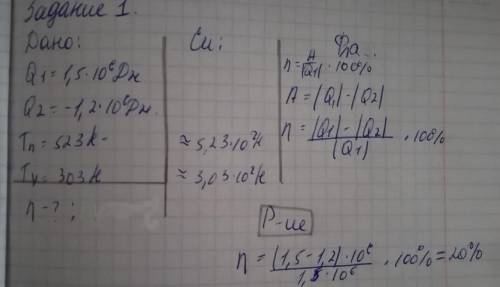 Задание 1.
Дано:
Q1 = 1,5·10⁶Дж
Q2 = -1,2·10⁶Дж.
Tн = 523К
Tх = 303К
η - ? ;
Си:
≈ 5,23·10²К
≈ 3,03·10²К
η = A/|Q1| · 100%
A = |Q1| - |Q2|
η = |Q1| - |Q2|/(Q1) · 100%
Р-ие
η = (1,5 - 1,2)·10⁶/1,5·10⁶ · 100% = 20%